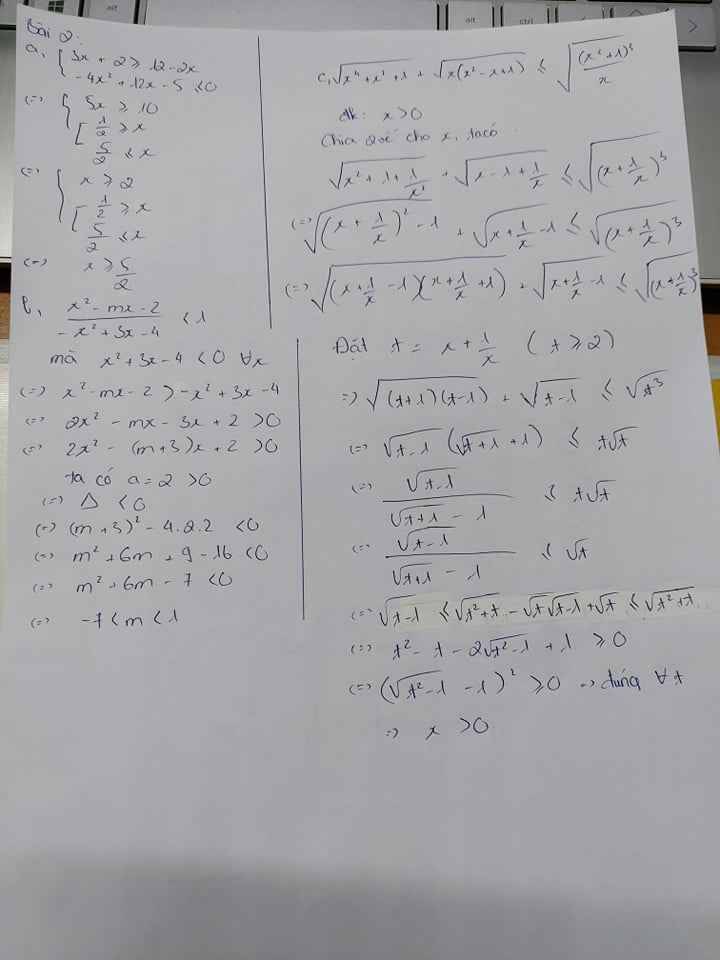 Bài 2:
a, { 3x + 2 ≥ 12 - 2x
-4x² + 12x - 5 ≤ 0
(=) { 5x ≥ 10
[ 1/2 ≥ x
5/2 ≤ x
(=) { x ≥ 2
[ 1/2 ≥ x
5/2 ≤ x
(=) x ≥ 5/2
b, (x² - mx - 2)/(-x² + 3x - 4) < 1
mà x² + 3x - 4 < 0 ∀x
(=) x² - mx - 2 > -x² + 3x - 4
(=) 2x² - mx - 3x + 2 > 0
(=) 2x² - (m+3)x + 2 > 0
ta có a = 2 > 0
(=) Δ < 0
(=) (m+3)² - 4.2.2 < 0
(=) m² + 6m + 9 - 16 < 0
(=) m² + 6m - 7 < 0
(=) -7 < m < 1
c, √(x⁴ + x² + 1) + √(x(x² - x + 1)) ≤ √((x² + 1)³/x)
đk: x > 0
Chia 2 vế cho x, ta có
√(x² + 1 + 1/x²) + √(x - 1 + 1/x) ≤ √((x + 1/x)³)
(=) √((x + 1/x)² - 1) + √(x + 1/x - 1) ≤ √((x + 1/x)³)
(=) √((x + 1/x - 1)(x + 1/x + 1)) + √(x + 1/x - 1) ≤ √((x + 1/x)³)
Đặt t = x + 1/x (t ≥ 2)
=) √((t+1)(t-1)) + √(t-1) ≤ √t³
(=) √(t-1) (√(t+1) + 1) ≤ t√t
(=) √(t-1)/(√(t+1) - 1) ≤ t√t
(=) √(t-1)/(√(t+1) - 1) ≤ √t
(=) √(t-1) ≤ √(t²+t) - √t√(t-1) + √t ≤ √(t²+t)
(=) t² - t - 2√(t²-1) + 1 ≥ 0
(=) (√(t²-1) - 1)² ≥ 0 → đúng ∀t
=) x > 0